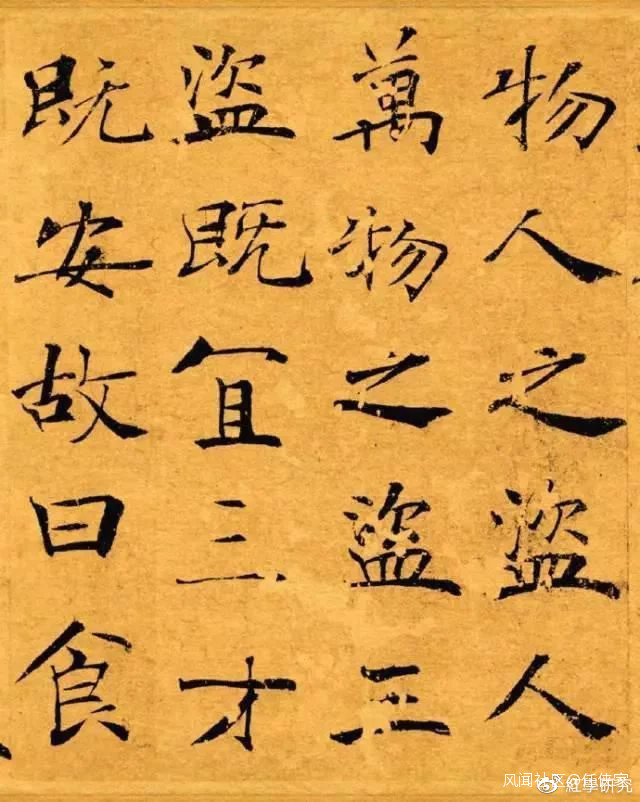 物人之盜人
萬物之盜三
盜既宜三才
既安故曰食
风闻社区
紅學研究